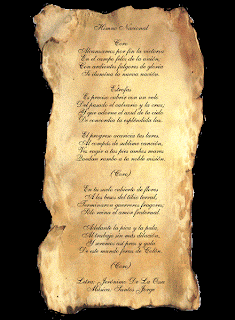 Himno Nacional
Coro
Alcanzamos por fin la victoria
En el campo feliz de la unión,
Con ardientes fulgores de gloria
Se ilumina la nueva nación.
Estrofas
Es preciso cubrir con un velo
Del pasado el calvario y la cruz,
Y que adorne el azul de tu cielo
De concordia la espléndida luz.
El progreso acaricia tus lares,
Al compás de sublime canción,
Ves rugir a tus pies ambos mares
Que dan rumbo a tu noble misión.
(Coro)
En tu suelo cubierto de flores
A los besos del tibio terral,
Terminaron guerreros fragores,
Sólo reina el amor fraternal.
Adelante la pica y la pala,
Al trabajo sin más dilación,
Y seremos así prez y gala
De este mundo feraz de Colón.
(Coro)
Letra: Jerónimo De La Ossa
Música: Santos Jorge